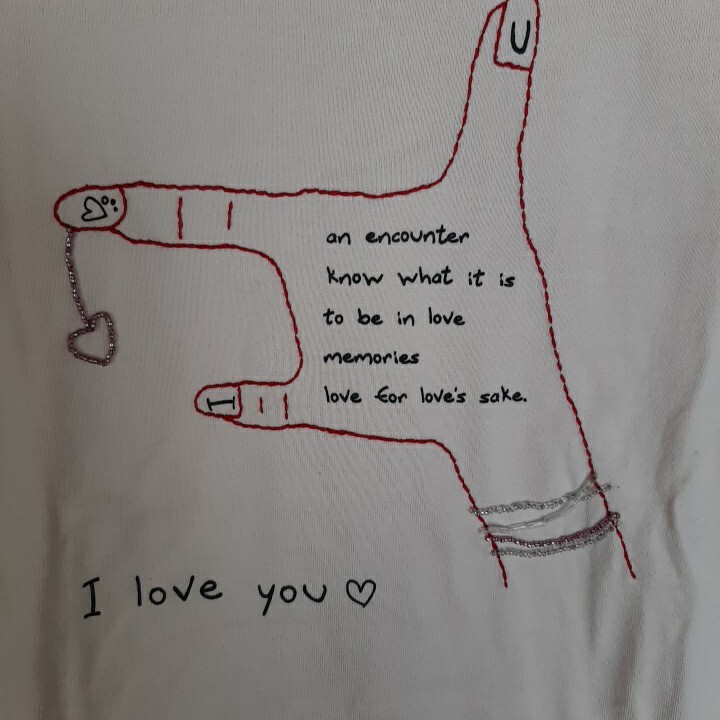 U
an encounter
know what it is
to be in love
memories
love for love's sake.
I
I love you ♡